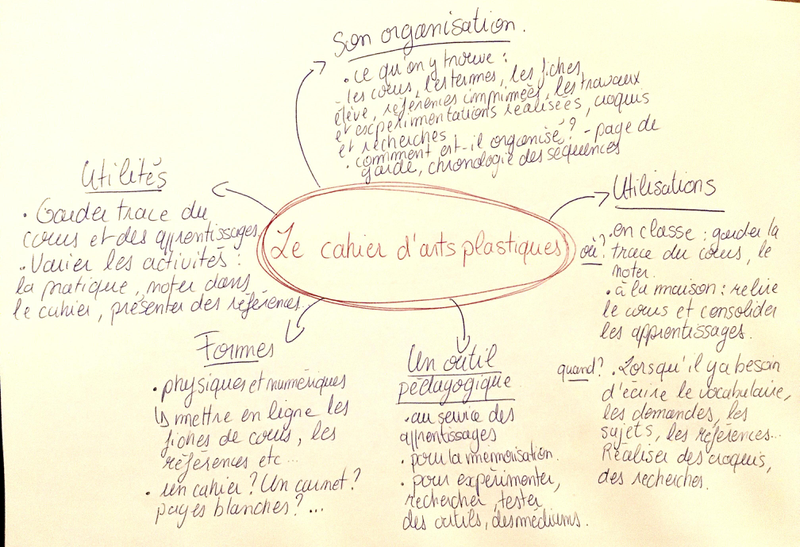 Son organisation.
• ce qu'on y trouve :
- les cours, les termes, les fiches
élève, références imprimées, les travaux
et expérimentations réalisées, croquis
et recherches
• comment est-il organisé? - page de
garde, chronologie des séquences
Utilités
• Garder trace du
cours et des apprentissages
• Varier les activités :
la pratique, noter dans
le cahier, présenter des références.
Le cahier d'arts plastiques
Utilisations
où? • en classe : garder la
trace du cours, le
noter.
• à la maison : relire
le cours et consolider
les apprentissages.
quand? • Lorsqu'il y a besoin
d'écrire le vocabulaire,
les demandes, les
sujets, les références...
Réaliser des croquis,
des recherches.
Formes
• physiques et numériques
↳ mettre en ligne les
fiches de cours, les
références etc...
• un cahier? Un carnet?
pages blanches?...
Un outil
pédagogique
• au service des
apprentissages
• pour la mémorisation.
• pour expérimenter,
rechercher, tester
des outils, des médiums.